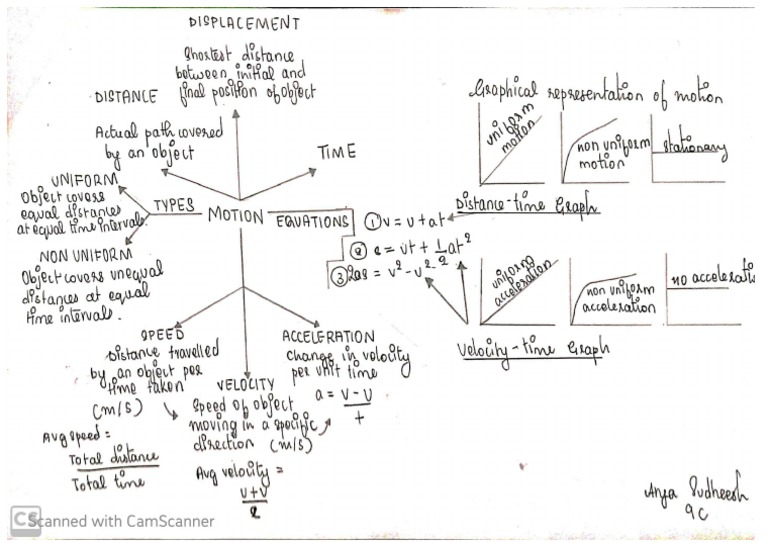 DISPLACEMENT
Shortest distance
between initial and
final position of object
DISTANCE
Actual path covered
by an object
TIME
UNIFORM
Object covers
equal distances
at equal time intervals.
TYPES
MOTION
EQUATIONS
NON UNIFORM
Object covers unequal
distances at equal
time intervals.
① v = u + at
② s = ut + 1/2 at²
③ 2as = v² - u²
SPEED
Distance travelled
by an object per
time taken
(m/s)
Avg speed =
Total distance
Total time
VELOCITY
Speed of object
moving in a specific
direction (m/s)
Avg velocity =
u+v
2
ACCELERATION
change in velocity
per unit time
a = v - u
t
Graphical representation of motion
uniform
motion
non uniform
motion
stationary
Distance-time Graph
uniform
acceleration
non uniform
acceleration
no acceleratio
Velocity-time Graph
Sudheesh
9C
CS Scanned with CamScanner